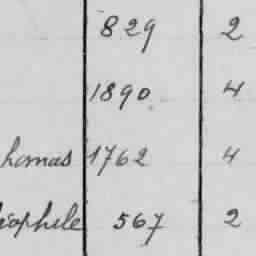 829 2
1890 4
homas 1762 4
éophile 567 2